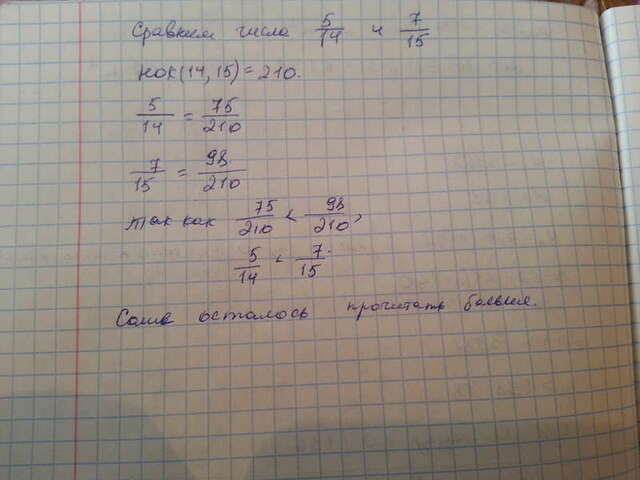 Сравним числа 5/14 и 7/15
НОК(14,15)=210.
5/14 = 75/210
7/15 = 98/210
так как 75/210 < 98/210,
5/14 < 7/15.
Соне осталось прочитать больше.